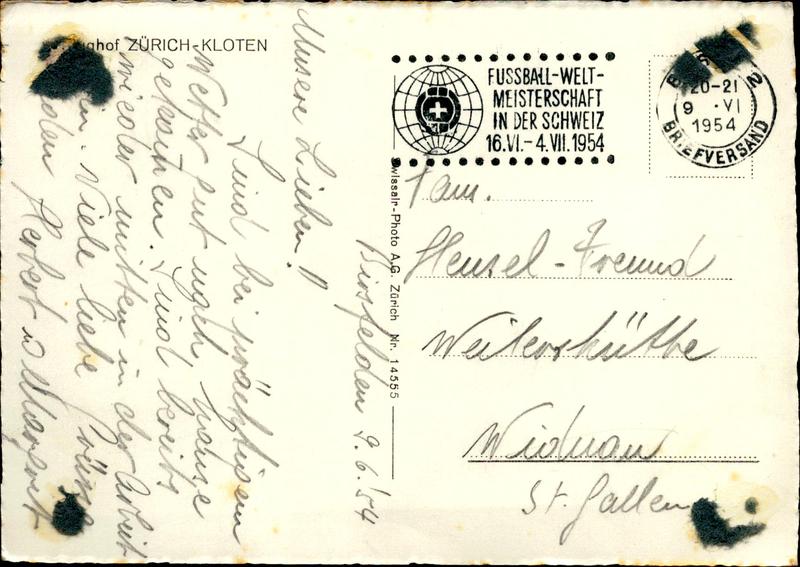 Flughof ZÜRICH-KLOTEN
Birsfelden 9.6.'54
Unsere Lieben!!
Sind bei prächtigem
Wetter gut nach Hause
gekommen. Sind bereits
wieder mitten in der Arbeit
Viele liebe Grüsse
Herbert u Margrit
Swissair-Photo A.G. Zürich Nr. 14555
FUSSBALL-WELT-
MEISTERSCHAFT
IN DER SCHWEIZ
16.VI.-4.VII.1954
20-21
9 .VI
1954
BRIEFVERSAND
Fam.
Hensel-Freund
Weikershütte
Widnau
St. Gallen